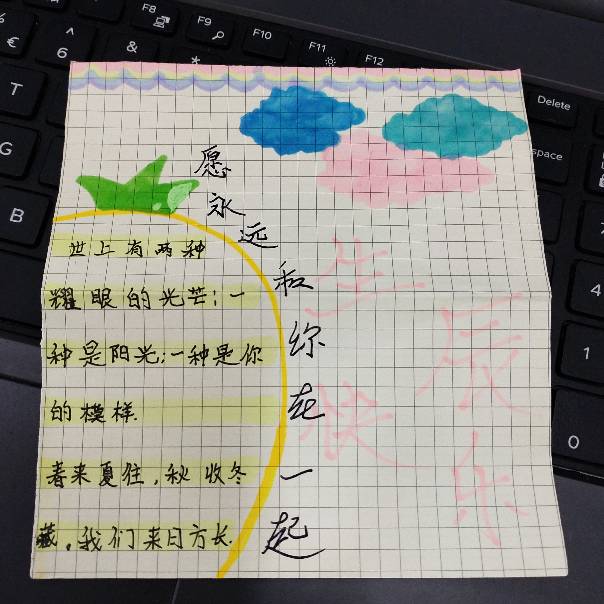 愿永远和你在一起
世上有两种
耀眼的光芒;一
种是阳光;一种是你
的模样.
春来夏往,秋收冬
藏,我们来日方长.
生辰
快乐
F8
F9
F10
F11
F12
Delete
€
6
&
*
T
G
B
space
4
1
0